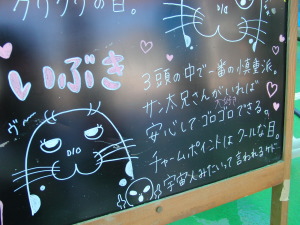 クリクリの目。
いぶき
3頭の中で一番の慎重派。
サン太兄さんがいれば
大好き
安心してゴロゴロできる。
チャームポイントはクールな目。
宇宙人みたいって言われるケド…
ヴー